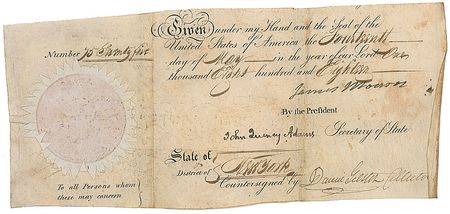 Given under my Hand and the Seal of the
United States of America the Fourteenth
day of May in the year of our Lord One
thousand Eight hundred and Eighteen
James Monroe
By the President
John Quincy Adams Secretary of State
Number 75 Seventy five
State of
District of New York
Countersigned by David
To all Persons whom
these may concern